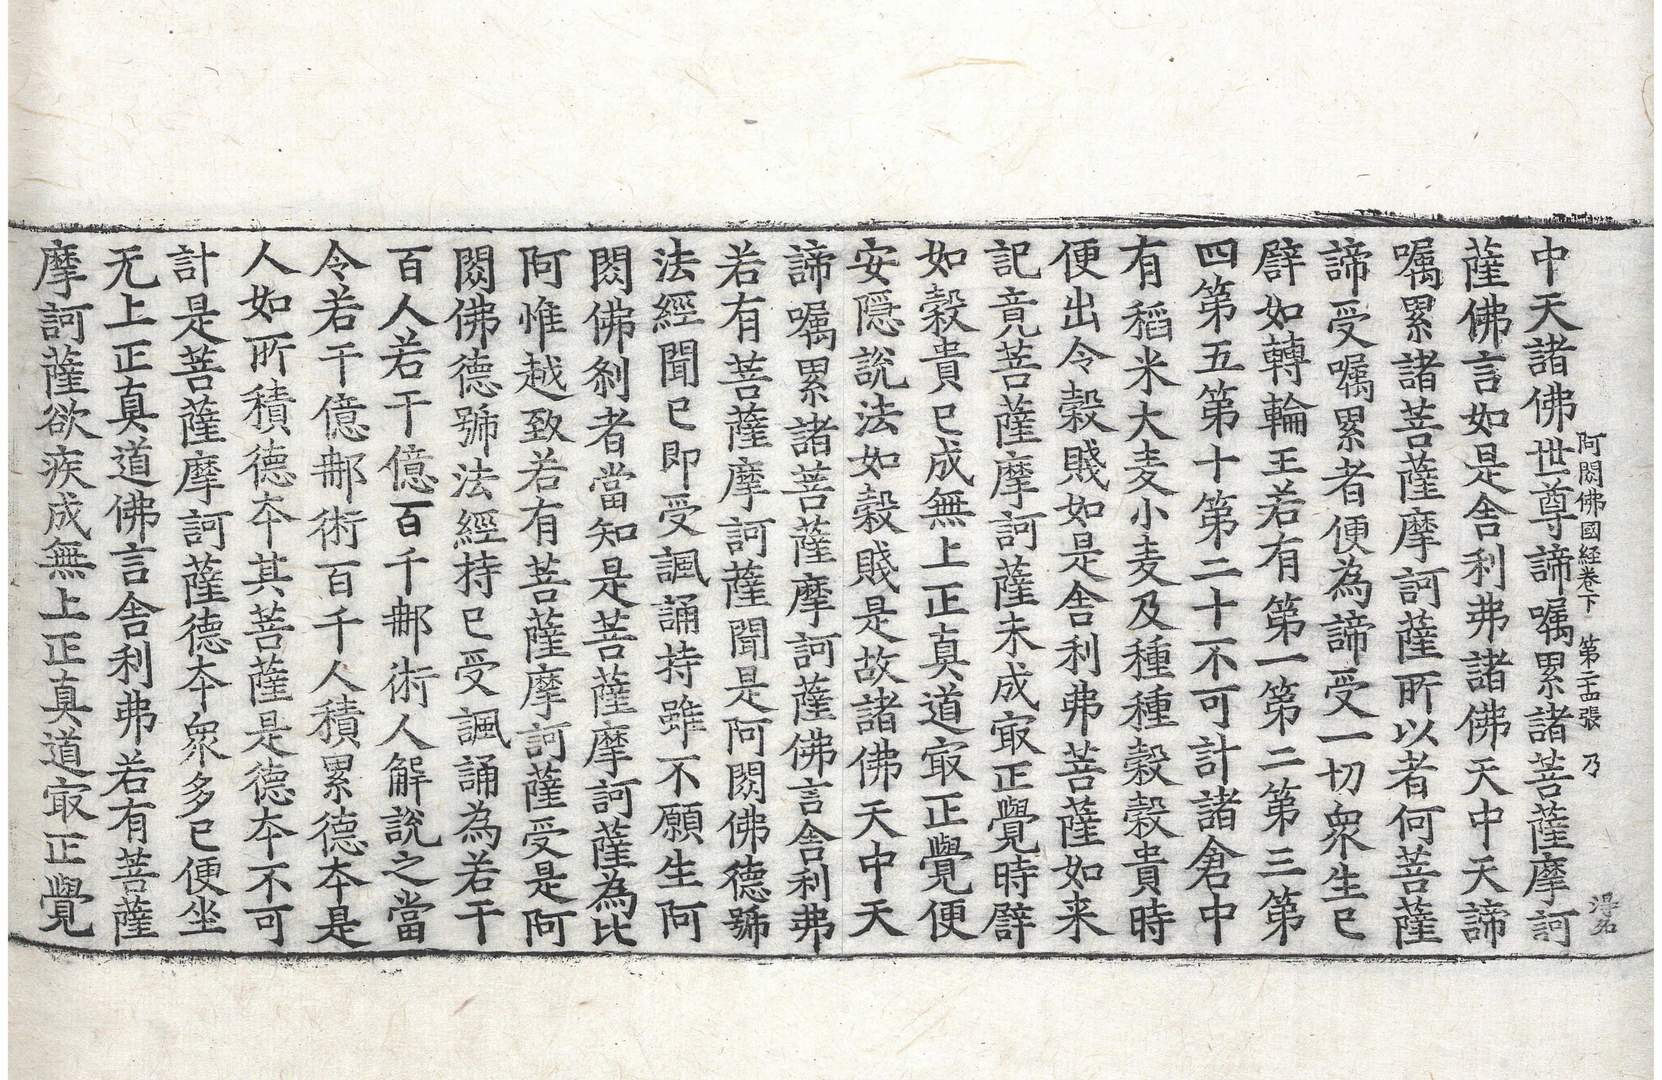 阿閦佛國經卷下 第二十四張 乃
中天諸佛世尊諦囑累諸菩薩摩訶
薩佛言如是舍利弗諸佛天中天諦
囑累諸菩薩摩訶薩所以者何菩薩
諦受囑累者便為諦受一切衆生已
譬如轉輪王若有第一第二第三第
四第五第十第二十不可計諸倉中
有稻米大麦小麦及種種穀穀貴時
便出令穀賤如是舍利弗菩薩如来
記竟菩薩摩訶薩未成㝡正覺時譬
如穀貴已成無上正真道㝡正覺便
安隱說法如穀賤是故諸佛天中天
諦囑累諸菩薩摩訶薩佛言舍利弗
若有菩薩摩訶薩聞是阿閦佛德號
法經聞已即受諷誦持雖不願生阿
閦佛刹者當知是菩薩摩訶薩為比
阿惟越致若有菩薩摩訶薩受是阿
閦佛德號法經持已受諷誦為若干
百人若干億百千𨚗術人解說之當
令若干億𨚗術百千人積累德夲是
人如所積德夲其菩薩是德夲不可
計是菩薩摩訶薩德夲衆多已便坐
无上正真道佛言舍利弗若有菩薩
摩訶薩欲疾成無上正真道㝡正覺